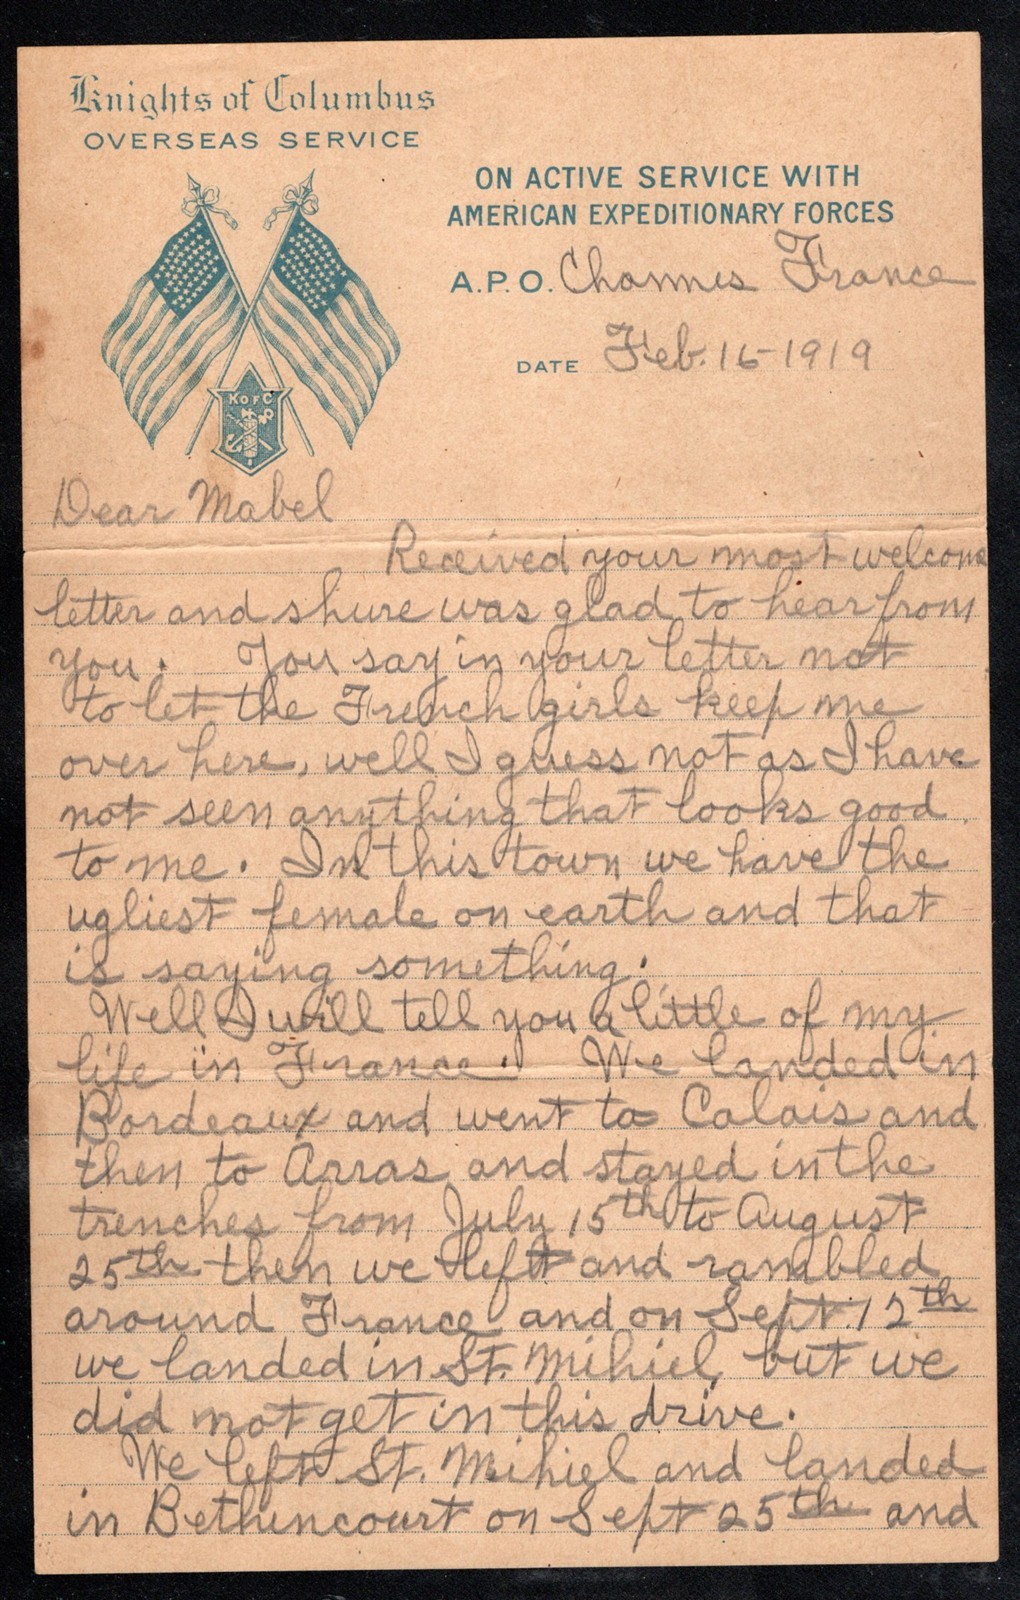 Knights of Columbus
OVERSEAS SERVICE
ON ACTIVE SERVICE WITH
AMERICAN EXPEDITIONARY FORCES
A.P.O. Channes France
DATE Feb. 16-1919
K OF C
Dear Mabel
Received your most welcome
letter and shure was glad to hear from
you. You say in your letter not
to let the French girls keep me
over here, well I guess not as I have
not seen anything that looks good
to me. In this town we have the
ugliest female on earth and that
is saying something.
Well I will tell you a little of my
life in France. We landed in
Bordeaux and went to Calais and
then to Arras and stayed in the
trenches from July 15th to August
25th then we left and rambled
around France and on Sept. 12th
we landed in St. Mihiel, but we
did not get in this drive.
We left St. Mihiel and landed
in Bethincourt on Sept 25th and